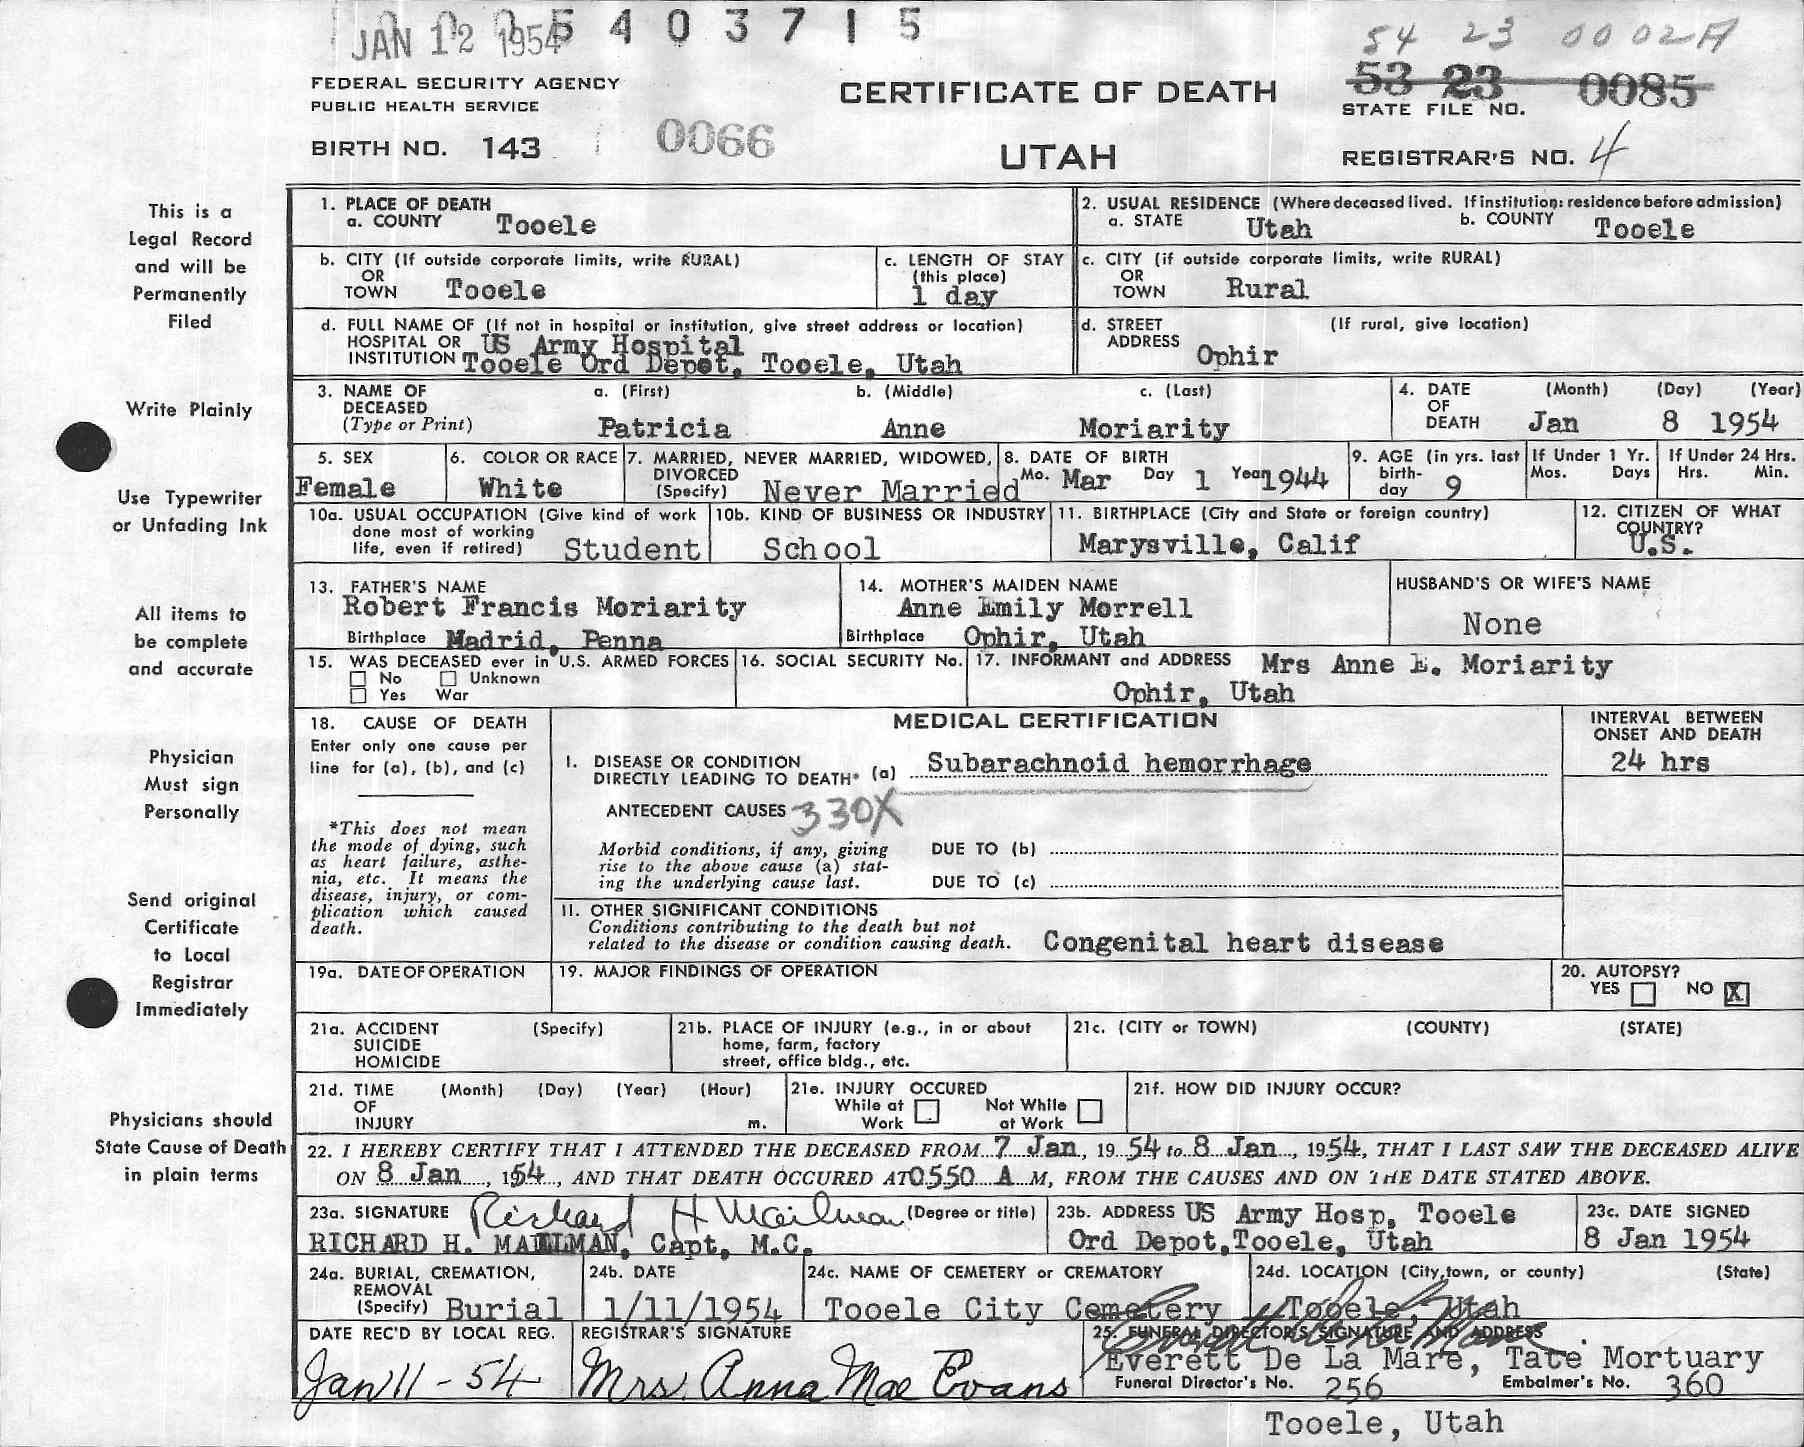 JAN 12 1954 5 4 0 3 7 1 5
54 23 0002A
FEDERAL SECURITY AGENCY
PUBLIC HEALTH SERVICE
CERTIFICATE OF DEATH
53 23 0085
STATE FILE NO.
BIRTH NO. 143 0066
UTAH
REGISTRAR'S NO. 4
This is a
Legal Record
and will be
Permanently
Filed
Write Plainly
Use Typewriter
or Unfading Ink
All items to
be complete
and accurate
Physician
Must sign
Personally
Send original
Certificate
to Local
Registrar
Immediately
Physicians should
State Cause of Death
in plain terms
1. PLACE OF DEATH
a. COUNTY Tooele
2. USUAL RESIDENCE (Where deceased lived. If institution: residence before admission)
a. STATE Utah b. COUNTY Tooele
b. CITY (If outside corporate limits, write RURAL)
OR
TOWN Tooele
c. LENGTH OF STAY
(this place)
1 day
c. CITY (if outside corporate limits, write RURAL)
OR
TOWN Rural
d. FULL NAME OF (If not in hospital or institution, give street address or location)
HOSPITAL OR US Army Hospital
INSTITUTION Tooele Ord Depot, Tooele, Utah
d. STREET (If rural, give location)
ADDRESS Ophir
3. NAME OF a. (First) b. (Middle) c. (Last)
DECEASED
(Type or Print) Patricia Anne Moriarity
4. DATE (Month) (Day) (Year)
OF
DEATH Jan 8 1954
5. SEX
Female
6. COLOR OR RACE
White
7. MARRIED, NEVER MARRIED, WIDOWED,
DIVORCED
(Specify) Never Married
8. DATE OF BIRTH
Mo. Mar Day 1 Year 1944
9. AGE (in yrs. last
birth-
day 9
If Under 1 Yr.
Mos. Days
If Under 24 Hrs.
Hrs. Min.
10a. USUAL OCCUPATION (Give kind of work
done most of working
life, even if retired) Student
10b. KIND OF BUSINESS OR INDUSTRY
School
11. BIRTHPLACE (City and State or foreign country)
Marysville, Calif
12. CITIZEN OF WHAT
COUNTRY?
U.S.
13. FATHER'S NAME
Robert Francis Moriarity
Birthplace Madrid, Penna
14. MOTHER'S MAIDEN NAME
Anne Emily Morrell
Birthplace Ophir, Utah
HUSBAND'S OR WIFE'S NAME
None
15. WAS DECEASED ever in U.S. ARMED FORCES
No Unknown
Yes War
16. SOCIAL SECURITY No.
17. INFORMANT and ADDRESS Mrs Anne E. Moriarity
Ophir, Utah
18. CAUSE OF DEATH
Enter only one cause per
line for (a), (b), and (c)
*This does not mean
the mode of dying, such
as heart failure, asthe-
nia, etc. It means the
disease, injury, or com-
plication which caused
death.
MEDICAL CERTIFICATION
INTERVAL BETWEEN
ONSET AND DEATH
I. DISEASE OR CONDITION
DIRECTLY LEADING TO DEATH* (a) Subarachnoid hemorrhage
24 hrs
ANTECEDENT CAUSES 330X
Morbid conditions, if any, giving
rise to the above cause (a) stat-
ing the underlying cause last.
DUE TO (b)
DUE TO (c)
II. OTHER SIGNIFICANT CONDITIONS
Conditions contributing to the death but not
related to the disease or condition causing death. Congenital heart disease
19a. DATE OF OPERATION
19. MAJOR FINDINGS OF OPERATION
20. AUTOPSY?
YES NO X
21a. ACCIDENT (Specify)
SUICIDE
HOMICIDE
21b. PLACE OF INJURY (e.g., in or about
home, farm, factory
street, office bldg., etc.
21c. (CITY or TOWN) (COUNTY) (STATE)
21d. TIME (Month) (Day) (Year) (Hour)
OF
INJURY m.
21e. INJURY OCCURED
While at Work
Not While at Work
21f. HOW DID INJURY OCCUR?
22. I HEREBY CERTIFY THAT I ATTENDED THE DECEASED FROM 7 Jan, 19 54 to 8 Jan, 1954, THAT I LAST SAW THE DECEASED ALIVE
ON 8 Jan, 154, AND THAT DEATH OCCURED AT 0550 A M, FROM THE CAUSES AND ON THE DATE STATED ABOVE.
23a. SIGNATURE Richard H Mailman (Degree or title)
RICHARD H. MAILMAN, Capt, M.C.
23b. ADDRESS US Army Hosp, Tooele
Ord Depot, Tooele, Utah
23c. DATE SIGNED
8 Jan 1954
24a. BURIAL, CREMATION,
REMOVAL
(Specify) Burial
24b. DATE
1/11/1954
24c. NAME OF CEMETERY or CREMATORY
Tooele City Cemetery
24d. LOCATION (City, town, or county) (State)
Tooele, Utah
DATE REC'D BY LOCAL REG.
Jan 11 - 54
REGISTRAR'S SIGNATURE
Mrs. Anna Mae Evans
25. FUNERAL DIRECTOR'S SIGNATURE AND ADDRESS
Everett De La Mare, Tate Mortuary
Funeral Director's No. 256 Embalmer's No. 360
Tooele, Utah